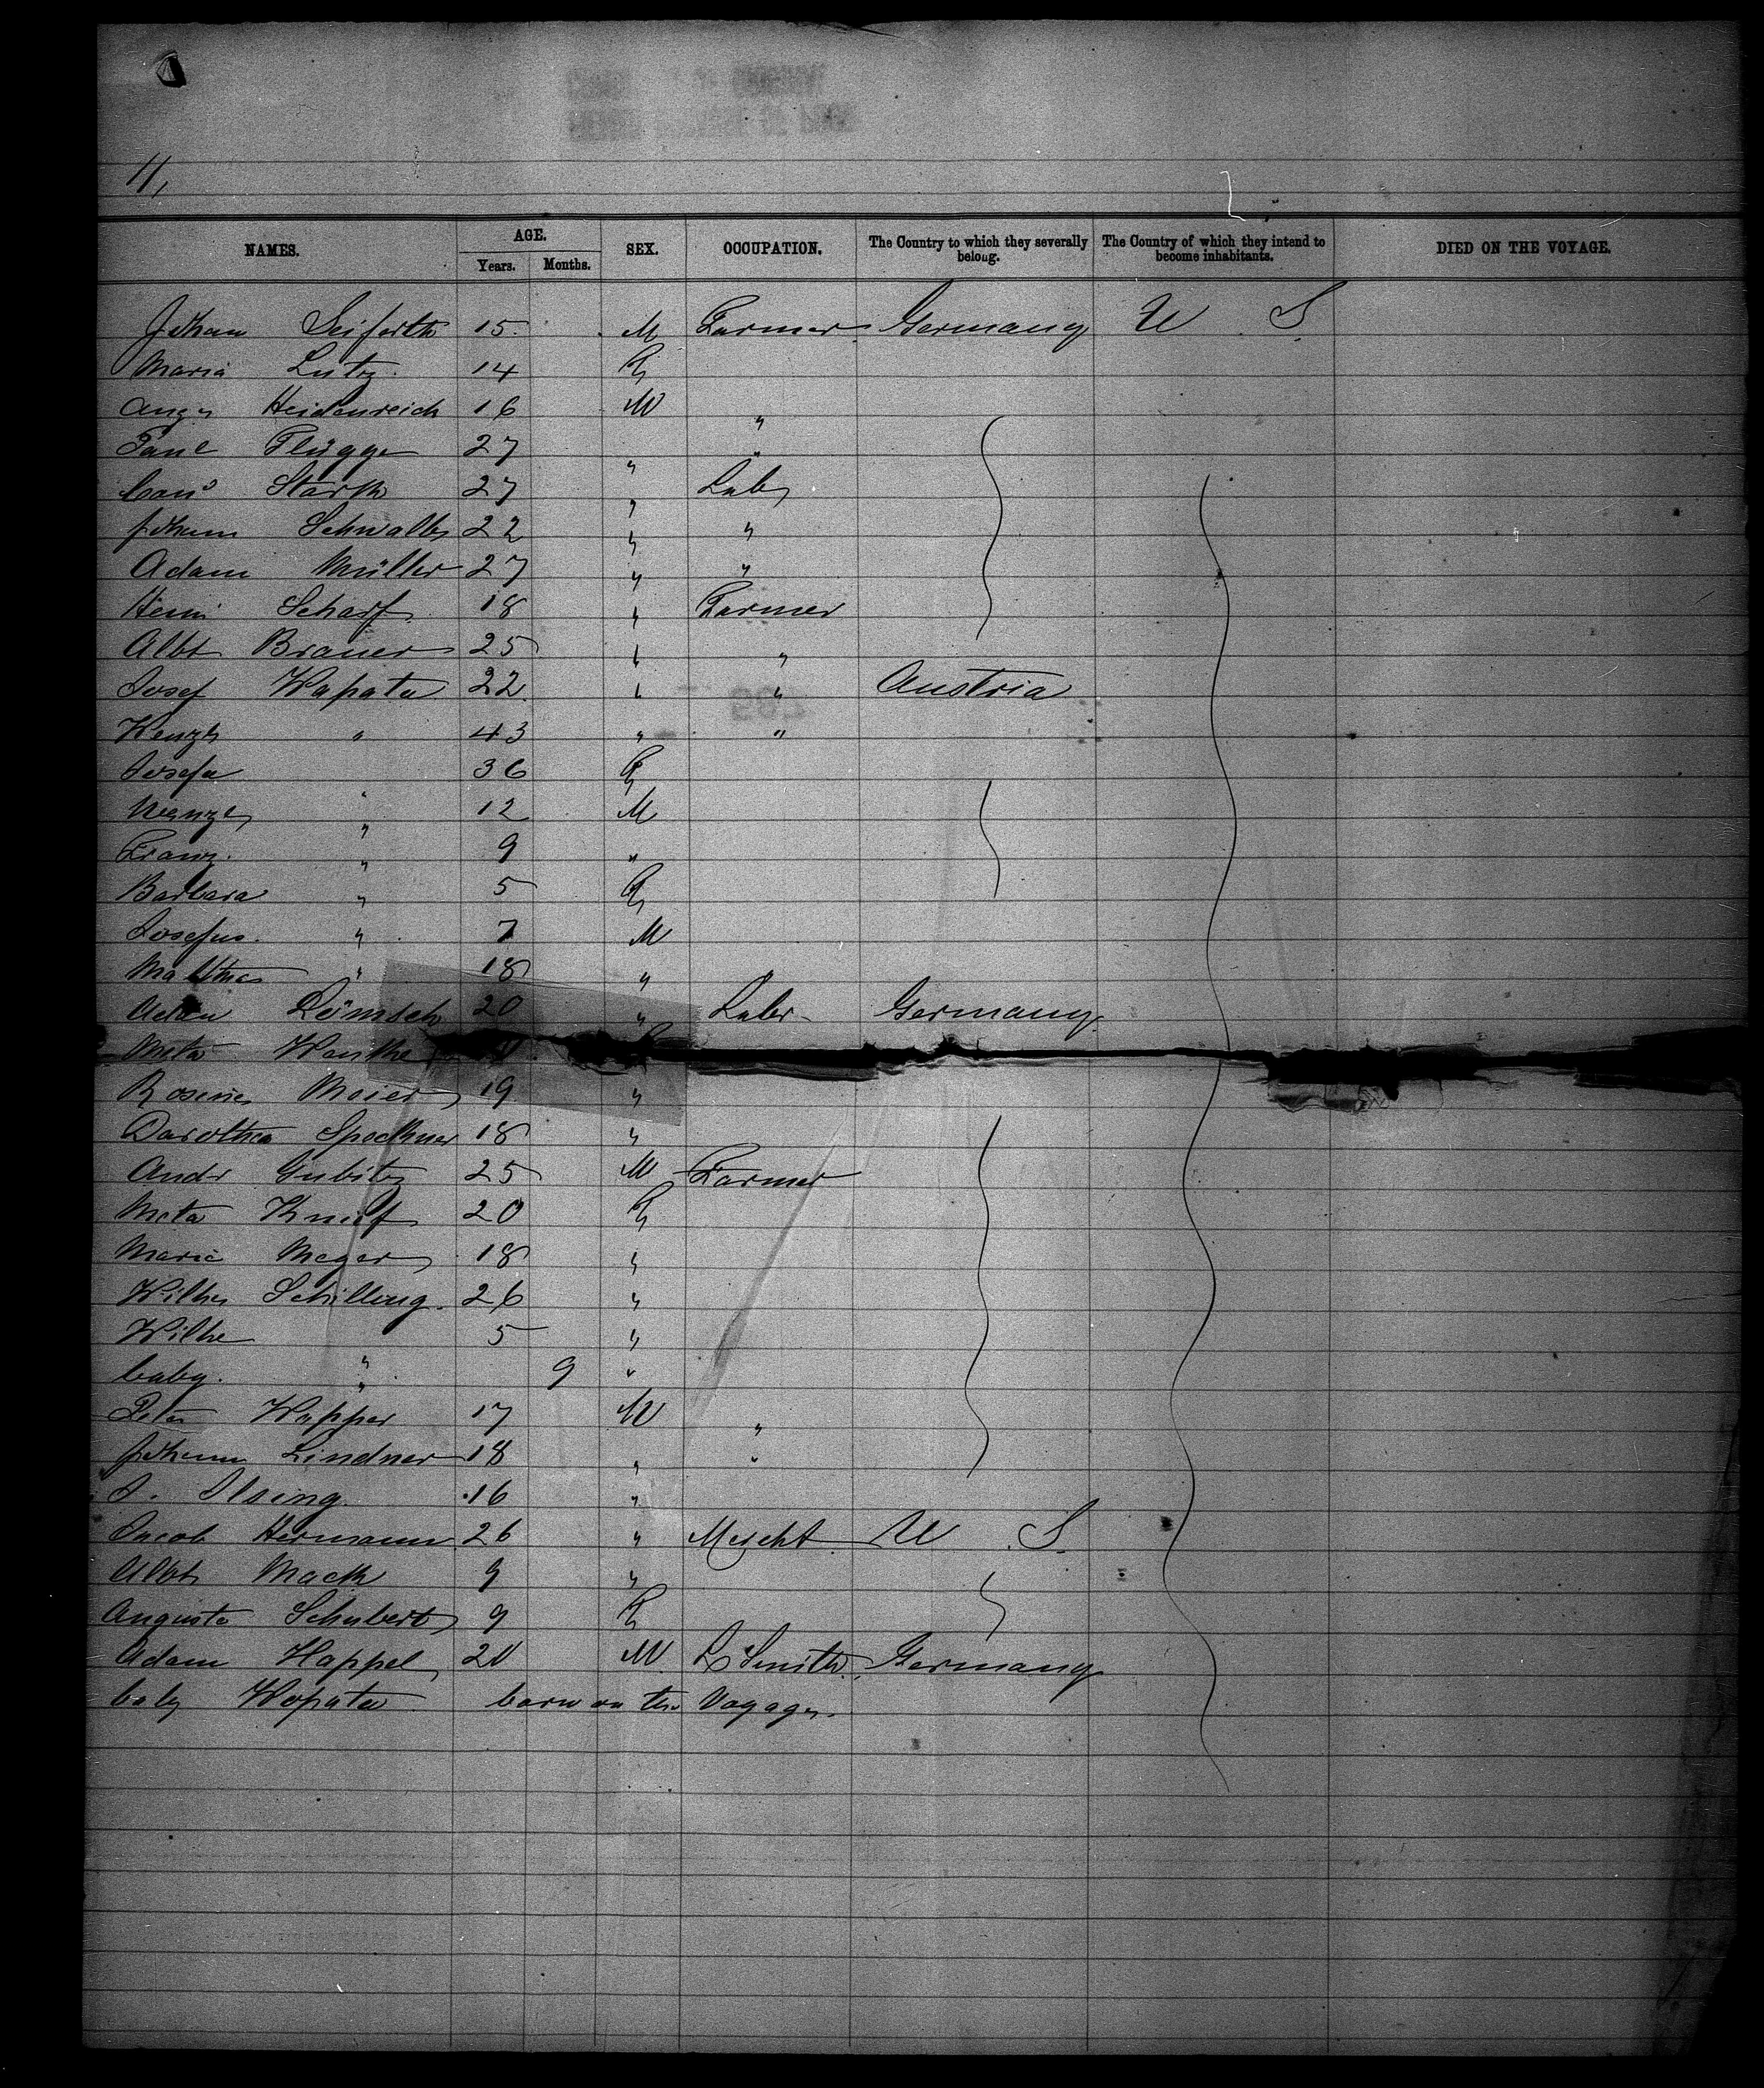 11,
NAMES. AGE. SEX. OCCUPATION. The Country to which they severally belong. The Country of which they intend to become inhabitants. DIED ON THE VOYAGE.
Years. Months.
Johann Seiferth 15 M Farmer Germany U S
Maria Lutz 14 F
Aug. Heidenreich 16 M "
Paul Flügge 27 " "
Stark 27 " Labr
Johann Schwalbe 22 " "
Adam Müller 27 " "
Heinr Scharf 18 " Farmer
Albt Brauer 25 " "
Josef Wapata 22 " " Austria
Wenzl " 43 " "
Josefa 36 F
Wenzel " 12 M
Franz " 9 "
Barbara " 5 F
Josefus " 7 M
Mathias " 18 "
20 " Labr Germany
Meta
Rosine Meier 19 "
Dorothea Speckner 18 "
Andr Gubitz 25 M Farmer
Meta Knief 20 F
Marie Meyer 18 "
Wilhe Schilling 26 "
Wilhe " 5 "
baby " 9 "
Peter Wupper 17 M "
Johann Lindner 18 " "
J. Ilsing 16 "
Jacob Hermann 26 " Mercht U S
Albt Mack 9 "
Auguste Schubert 9 F
Adam Happel 20 M L Smith Germany
baby Wopata born on the Voyage.